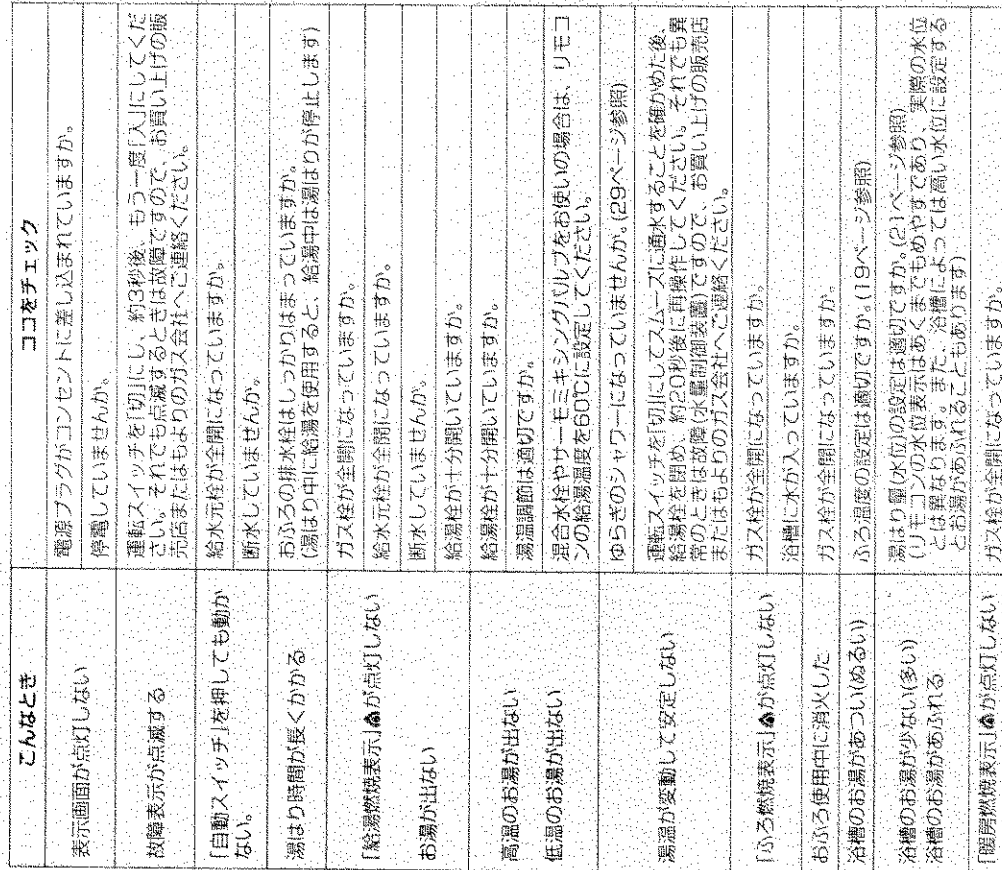 こんなとき
ココをチェック
表示画面が点灯しない
電源プラグがコンセントに差し込まれていますか。
停電していませんか。
故障表示が点滅する
運転スイッチを「切」にし、約3秒後、もう一度「入」にしてくだ
さい。それでも点滅するときは故障ですので、お買い上げの販
売店またはもよりのガス会社へご連絡ください。
「自動スイッチ」を押しても動か
ない。
給水元栓が全開になっていますか。
断水していませんか。
湯はり時間が長くかかる
おふろの排水栓はしっかりはまっていますか。
(湯はり中に給湯を使用すると、給湯中は湯はりが停止します)
「給湯燃焼表示」が点灯しない
お湯が出ない
ガス栓が全開になっていますか。
給水元栓が全開になっていますか。
断水していませんか。
給湯栓が十分開いていますか。
高温のお湯が出ない
低温のお湯が出ない
給湯栓が十分開いていますか。
湯温調節は適切ですか。
混合水栓やサーモミキシングバルブをお使いの場合は、リモコ
ンの給湯温度を60℃に設定してください。
湯温が変動して安定しない
ゆらぎのシャワーになっていませんか。(29ページ参照)
運転スイッチを「切」にしてスムーズに通水することを確かめた後、
給湯栓を閉め、約20秒後に再操作してください。それでも異
常のときは故障(水量制御装置)ですので、お買い上げの販売店
またはもよりのガス会社へご連絡ください。
「ふろ燃焼表示」が点灯しない
ガス栓が全開になっていますか。
浴槽に水が入っていますか。
おふろ使用中に消火した
ガス栓が全開になっていますか。
浴槽のお湯があつい(ぬるい)
ふろ温度の設定は適切ですか。(19ページ参照)
浴槽のお湯が少ない(多い)
浴槽のお湯があふれる
湯はり量(水位)の設定は適切ですか。(21ページ参照)
(リモコンの水位表示はあくまでもめやすであり、実際の水位
とは異なります。また、浴槽によっては高い水位に設定する
とお湯があふれることもあります)
「暖房燃焼表示」が点灯しない
ガス栓が全開になっていますか。